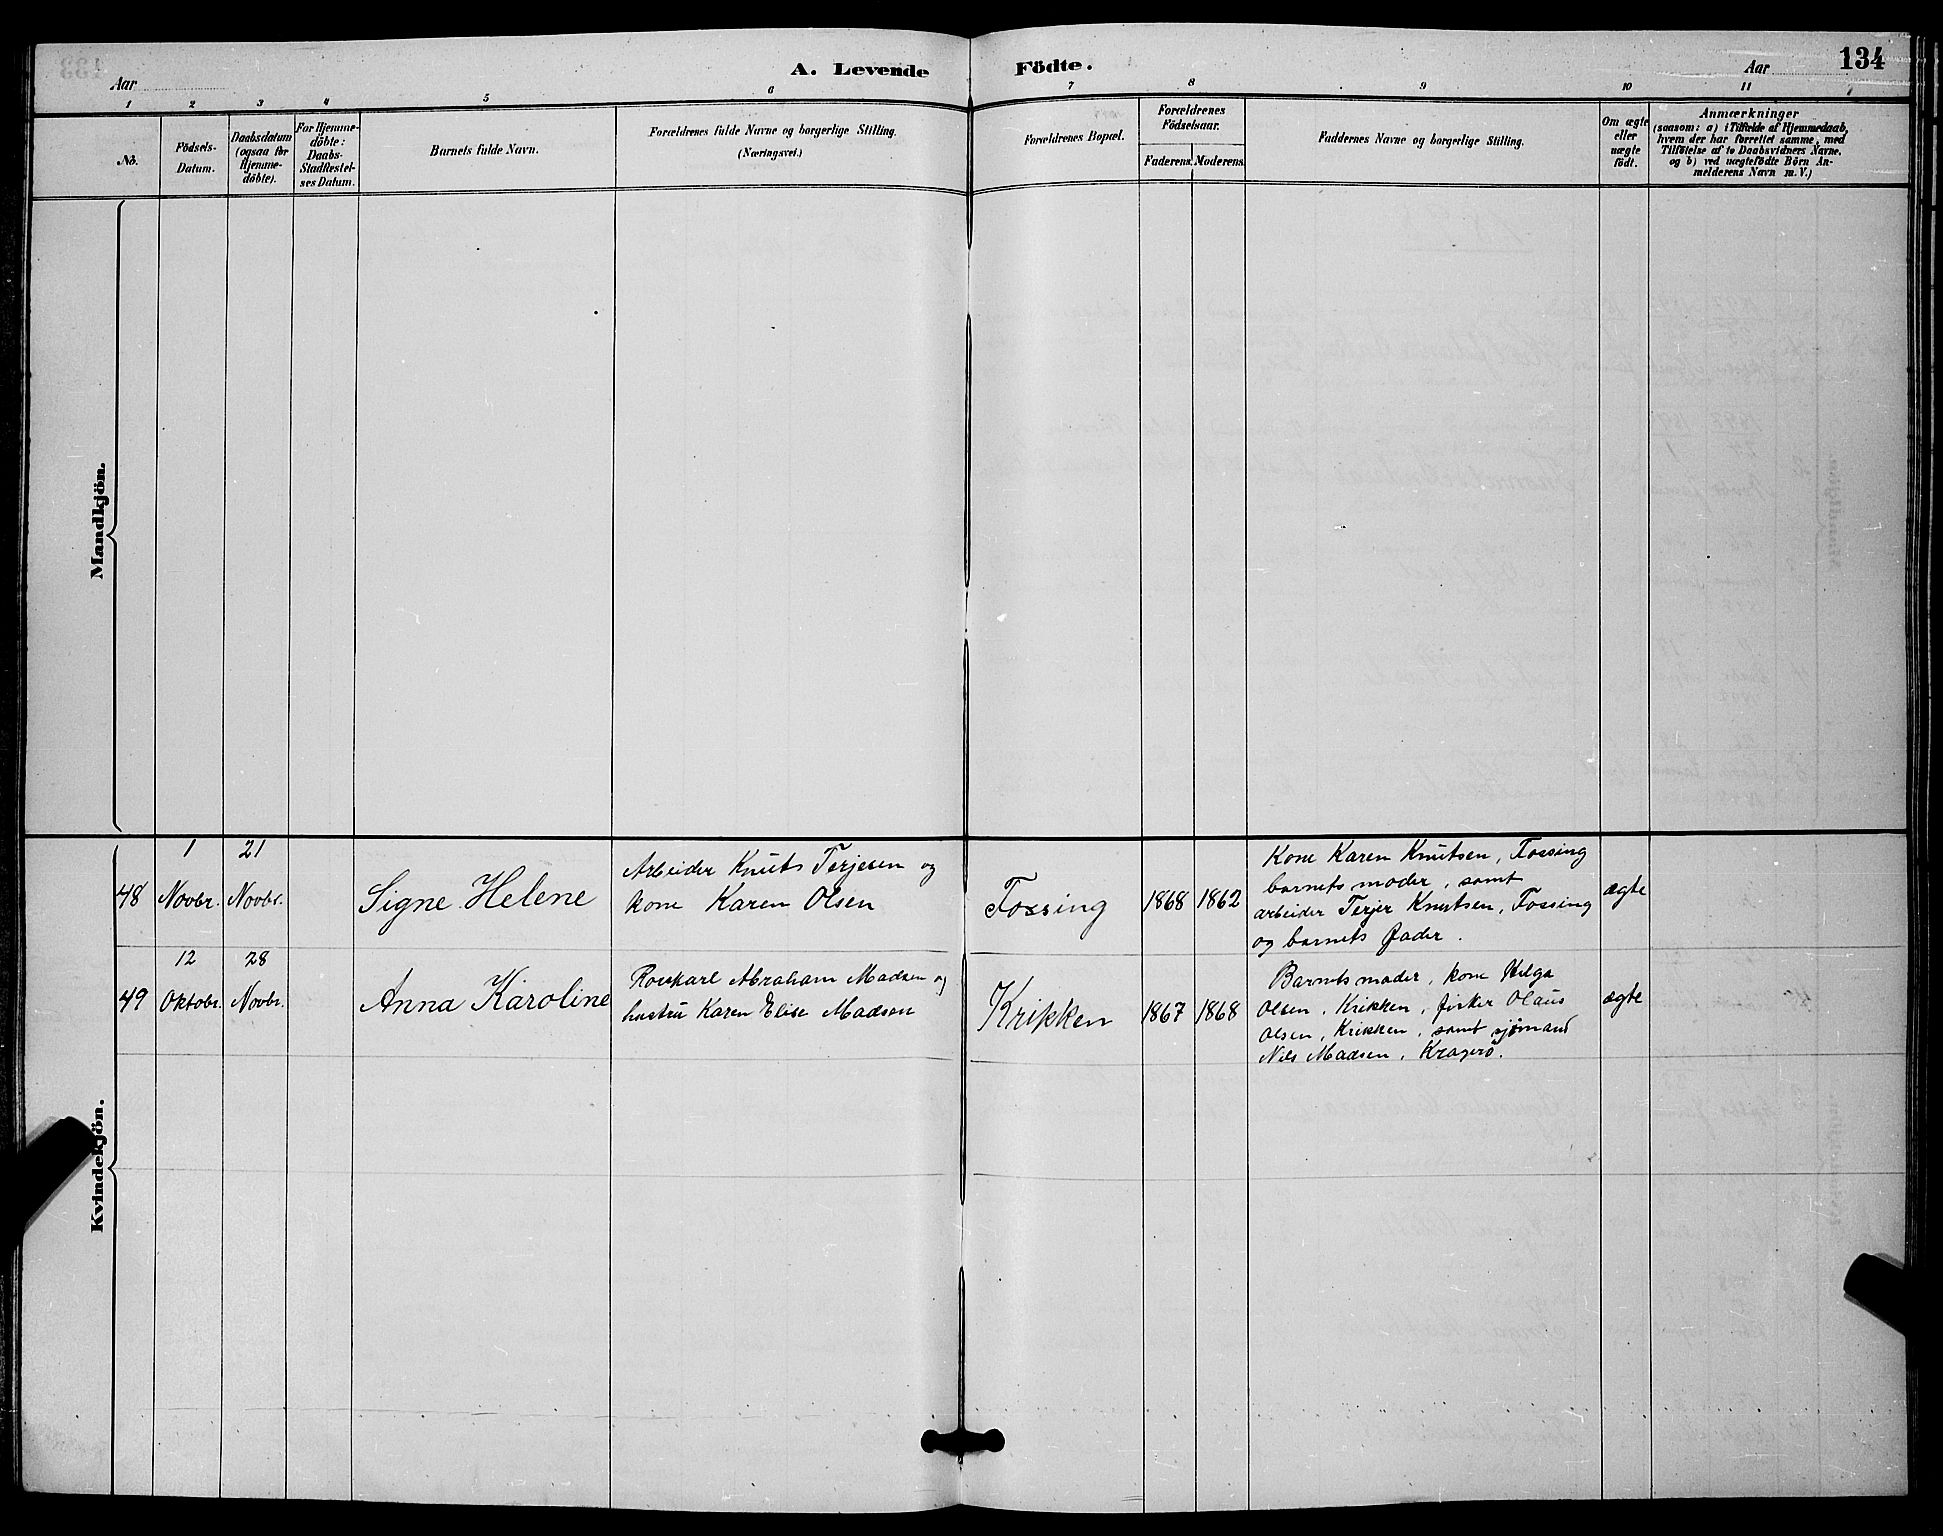 134
A. Levende Födte.
Aar
Aar
1 2 3 4 5 6 7 8 9 10 11
No.
Födsels-
Datum.
Daabsdatum
(ogsaa for
Hjemme-
döbte).
For Hjemme-
döbte:
Daabs-
Stadfæstel-
ses Datum.
Barnets fulde Navn.
Forældrenes fulde Navne og borgerlige Stilling.
(Næringsvei.)
Forældrenes Bopæl.
Forældrenes
Födselsaar.
Faderens. Moderens.
Faddernes Navne og borgerlige Stilling.
Om ægte
eller
uægte
födt.
Anmærkninger
(saasom: a) i Tilfælde af Hjemmedaab,
hvem der har forrettet samme, med
Tilföielse af to Daabsvidners Navne,
og b) ved uægtefödte Börn An-
melderens Navn m. V.)
Mandkjön.
Kvindekjön.
48
1
Novbr.
21
Novbr.
Signe Helene
Arbeider Knut Terjesen og
kone Karen Olsen
Fossing
1868
1862
Kone Karen Knutsen, Fossing
barnets moder, samt
arbeider Terjer Knutsen, Fossing
og barnets fader.
ægte
49
12
Oktobr.
28
Novbr.
Anna Karoline
Abraham Madsen og
hustru Karen Elise Madsen
Krikken
1867
1868
Barnets moder, kone Helga
Olsen, Krikken, fisker Olaus
Olsen, Krikken, samt sjømand
Nils Madsen, Kragerö.
ægte